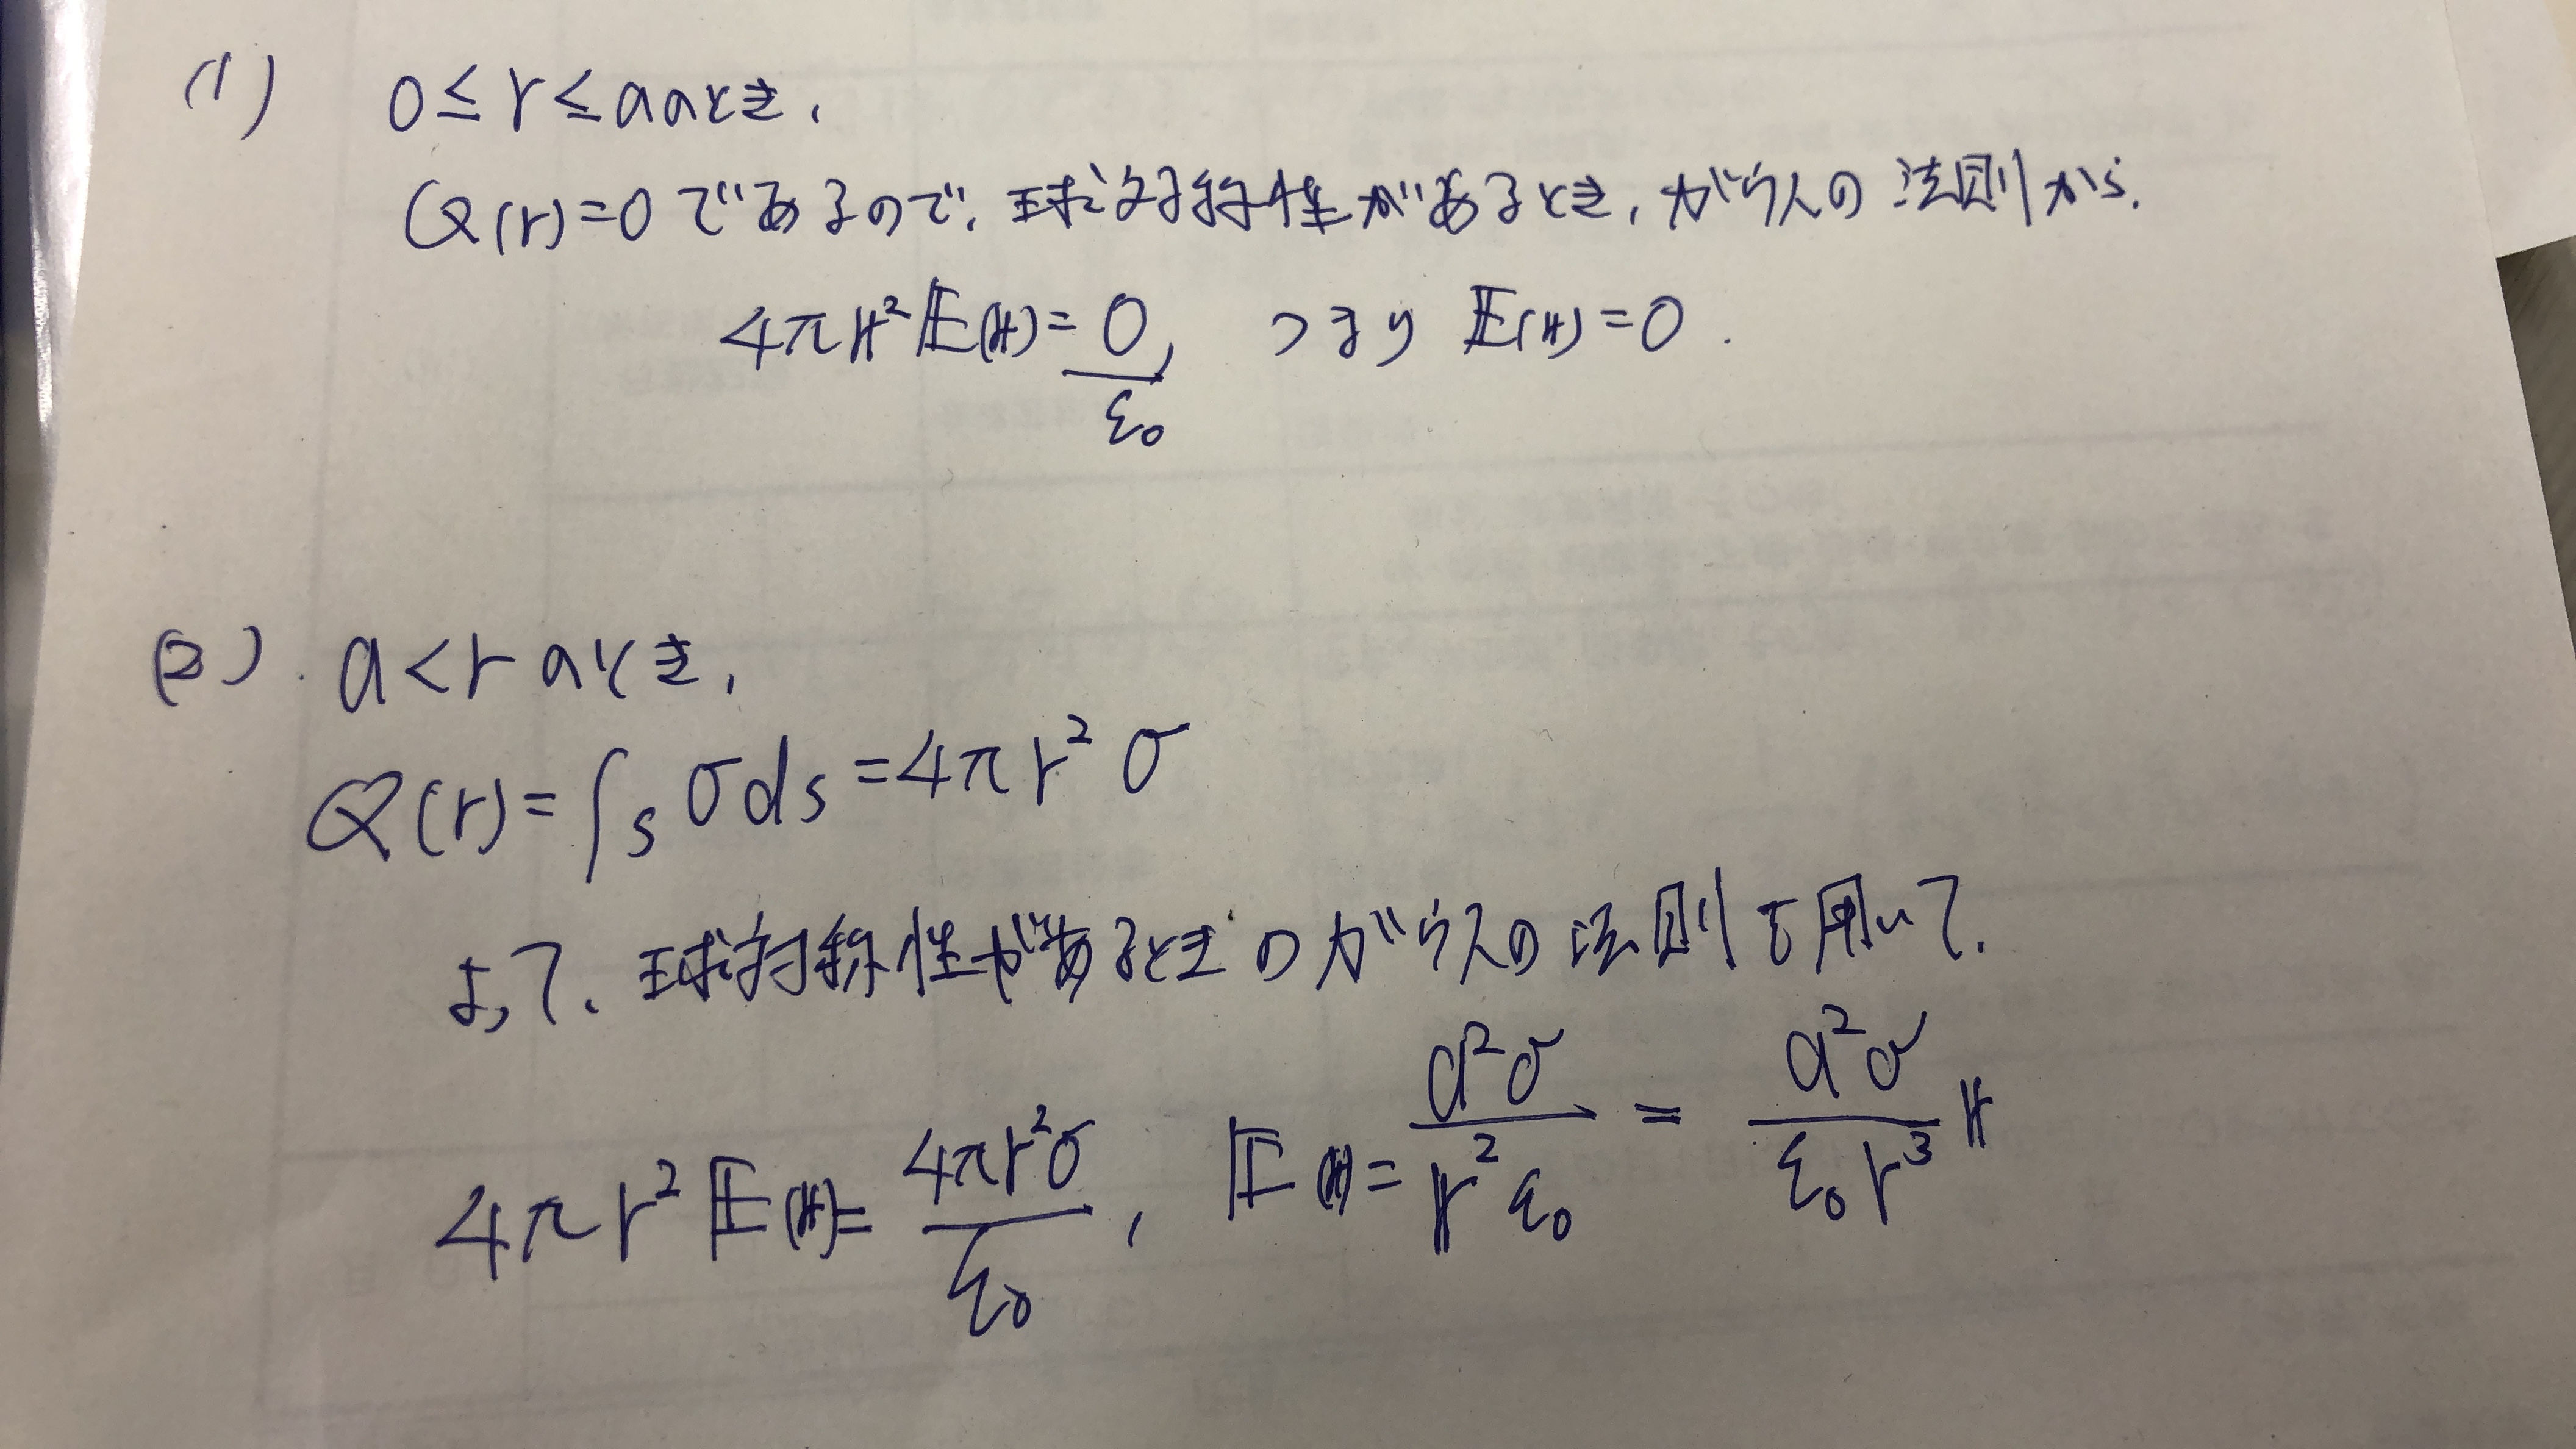 (1) 0≤r≤aのとき,
Q(r)=0であるので,球対称性があるとき,ガウスの法則から,
4π𝕣²𝔼(𝕣)=0/ε₀, つまり 𝔼(𝕣)=0.
(2). a<rのとき,
Q(r)=∫ₛσds=4πr²σ
よって,球対称性があるときのガウスの法則を用いて,
4πr²𝔼(𝕣)=4πr²σ/ε₀, 𝔼(𝕣)=a²σ/𝕣²ε₀=a²σ/ε₀r³ 𝕣